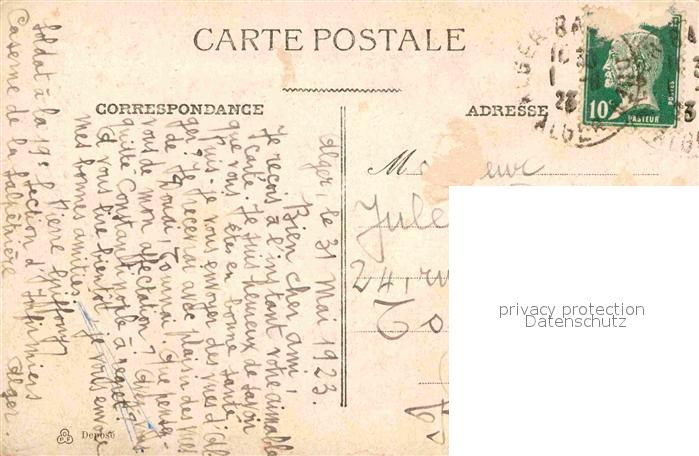 CARTE POSTALE
CORRESPONDANCE
ADRESSE
Alger, le 31 Mai 1923.
Bien cher ami,
Je reçois à l'instant votre aimable
carte. Je suis heureux de savoir
que vous êtes en bonne santé
Puis-je vous envoyer des vues d'Al-
ger? Je recevrai avec plaisir des vues
de Tournai. Que pensez-
vous de mon affectation?
quitté Constantinople à regret?
A vous lire bientôt. Je vous envoie
mes bonnes amitiés.
Pierre
Soldat à la 19e Section d'Infirmiers
Caserne de la Salpêtrière Alger.
Jule
24, ru
10c
PASTEUR
POSTES
ALGER
23
Déposé
privacy protection
Datenschutz